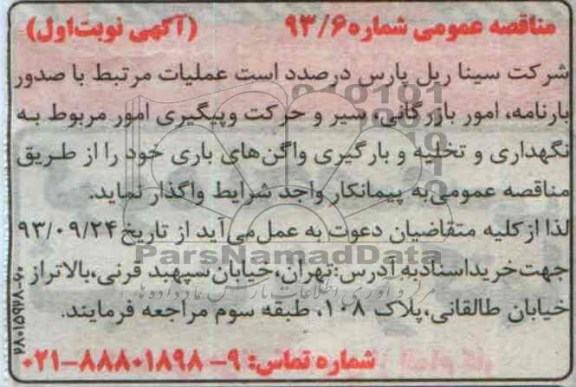 مناقصه عمومی شماره ۹۳/۶ (آگهی نوبت اول)
شرکت سینا ریل پارس درصدد است عملیات مرتبط با صدور
بارنامه، امور بازرگانی، سیر و حرکت وپیگیری امور مربوط به
نگهداری و تخلیه و بارگیری واگن‌های باری خود را از طریق
مناقصه عمومی‌به پیمانکار واجد شرایط واگذار نماید.
لذا ازکلیه متقاضیان دعوت به عمل‌می‌آید از تاریخ ۹۳/۰۹/۲۴
ParsNamadData
جهت‌خریداسنادبه آدرس:تهران،خیابان‌سپهبد قرنی،بالاتراز
خیابان طالقانی،پلاک ۱۰۸، طبقه سوم مراجعه فرمایند.
شماره تماس: ۹-۸۸۸۰۱۸۹۸-۰۲۱